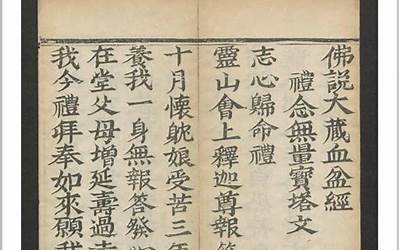 佛説大藏血盆經
禮念無量寶塔文
志心歸命禮
靈山會上釋迦尊報答
十月懷躭娘受苦三年
養我一身無報答發
在堂父母増延壽過
我今禮拜奉如來願我